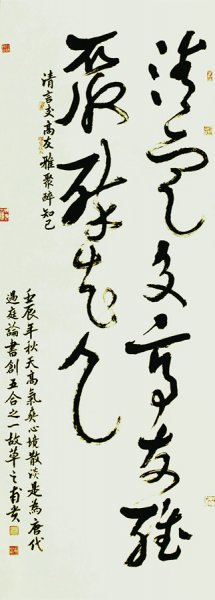 清言交高友雅
聚醉知己
清言交高友雅聚醉知己
壬辰年秋天高氣爽心境散淡是為唐代
過庭論書創五合之一故草之